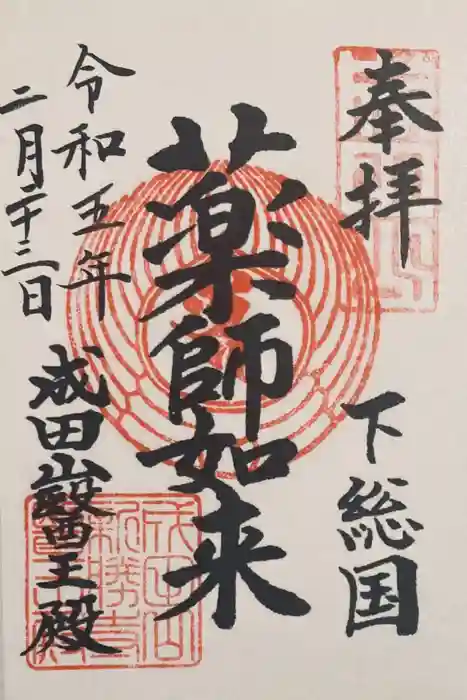 奉拝
下総国
薬師如来
令和五年
二月二十二日
成田山醫王殿
成田山
新勝寺